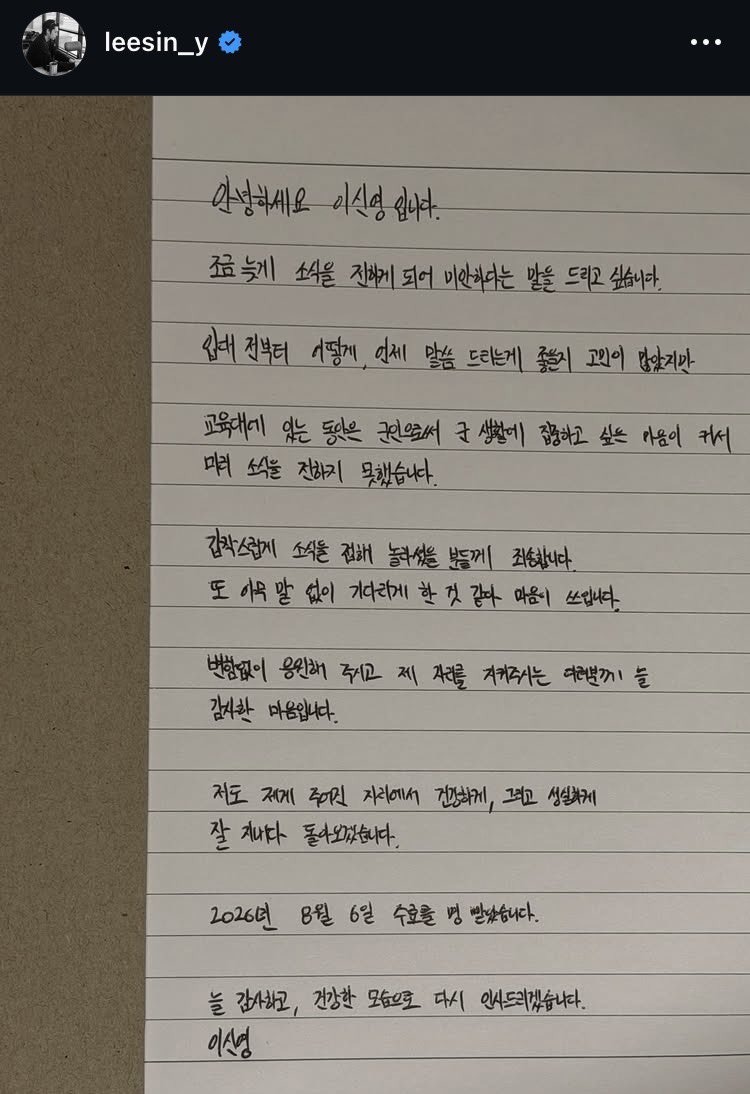 leesin_y
안녕하세요 이신영입니다.
조금 늦게 소식을 전하게 되어 미안하다는 말을 드리고 싶습니다.
입대 전부터 어떻게, 언제 말씀 드리는게 좋을지 고민이 많았지만
교육대에 있는 동안은 군인으로써 군 생활에 집중하고 싶은 마음이 커서
미리 소식을 전하지 못했습니다.
갑작스럽게 소식을 접해 놀라셨을 분들께 죄송합니다.
또 아무 말 없이 기다리게 한 것 같아 마음이 쓰입니다.
변함없이 응원해 주시고 제 자리를 지켜주시는 여러분께 늘
감사한 마음입니다.
저도 제게 주어진 자리에서 건강하게, 그리고 성실하게
잘 지내다 돌아오겠습니다.
2026년 8월 6일 수료를 명 받았습니다.
늘 감사하고, 건강한 모습으로 다시 인사드리겠습니다.
이신영